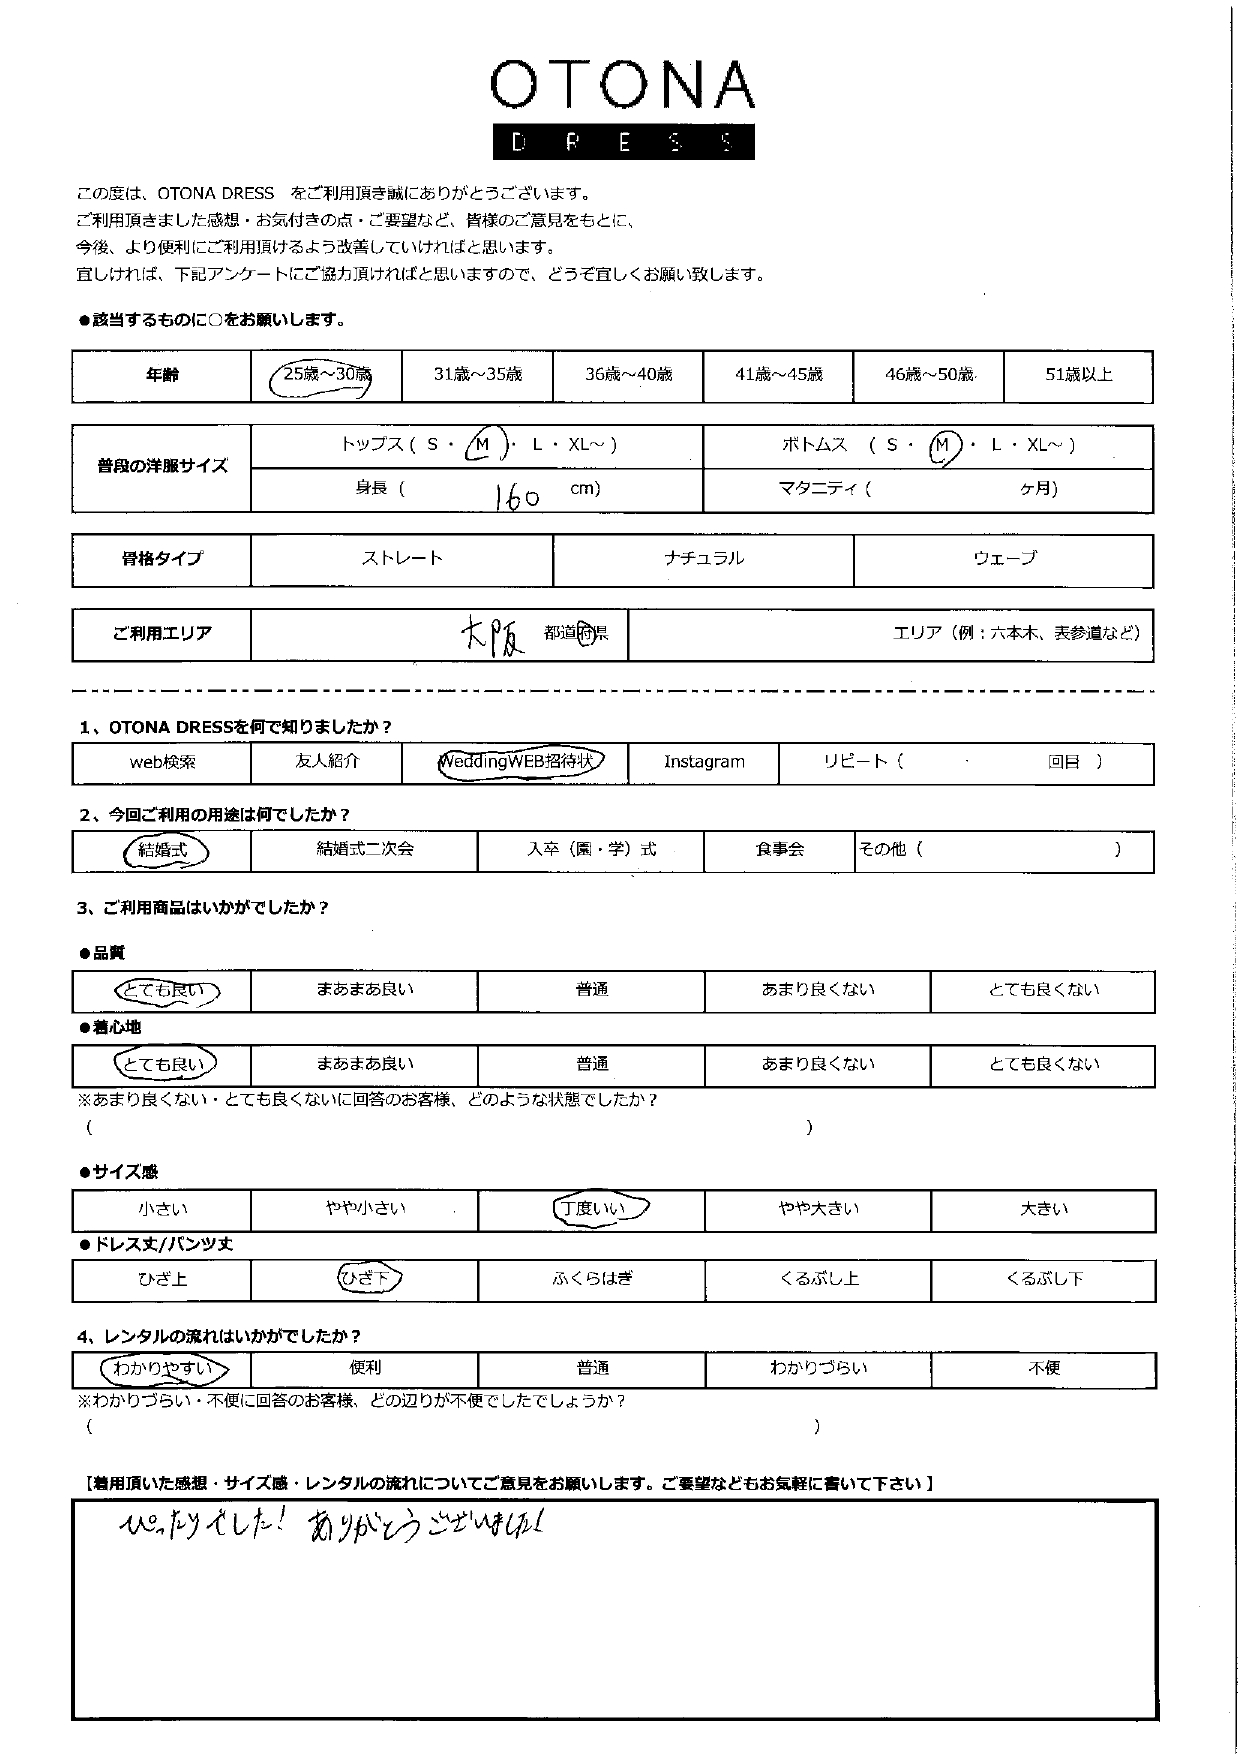 OTONA
DRESS
この度は、OTONA DRESS　をご利用頂き誠にありがとうございます。
ご利用頂きました感想・お気付きの点・ご要望など、皆様のご意見をもとに、
今後、より便利にご利用頂けるよう改善していければと思います。
宜しければ、下記アンケートにご協力頂ければと思いますので、どうぞ宜しくお願い致します。
●該当するものに○をお願いします。
年齢 25歳～30歳 31歳～35歳 36歳～40歳 41歳～45歳 46歳～50歳 51歳以上
普段の洋服サイズ トップス ( S ・ M ・ L ・ XL～ ) ボトムス ( S ・ M ・ L ・ XL～ )
身長 ( 160 cm) マタニティ ( ヶ月)
骨格タイプ ストレート ナチュラル ウェーブ
ご利用エリア 大阪 都道府県 エリア（例：六本木、表参道など）
1、OTONA DRESSを何で知りましたか？
web検索 友人紹介 WeddingWEB招待状 Instagram リピート（ 回目 ）
2、今回ご利用の用途は何でしたか？
結婚式 結婚式二次会 入卒（園・学）式 食事会 その他（ ）
3、ご利用商品はいかがでしたか？
●品質
とても良い まあまあ良い 普通 あまり良くない とても良くない
●着心地
とても良い まあまあ良い 普通 あまり良くない とても良くない
※あまり良くない・とても良くないに回答のお客様、どのような状態でしたか？
（ ）
●サイズ感
小さい やや小さい 丁度いい やや大きい 大きい
●ドレス丈/パンツ丈
ひざ上 ひざ下 ふくらはぎ くるぶし上 くるぶし下
4、レンタルの流れはいかがでしたか？
わかりやすい 便利 普通 わかりづらい 不便
※わかりづらい・不便に回答のお客様、どの辺りが不便でしたでしょうか？
（ ）
【着用頂いた感想・サイズ感・レンタルの流れについてご意見をお願いします。ご要望などもお気軽に書いて下さい】
ぴったりでした！ ありがとうございました！